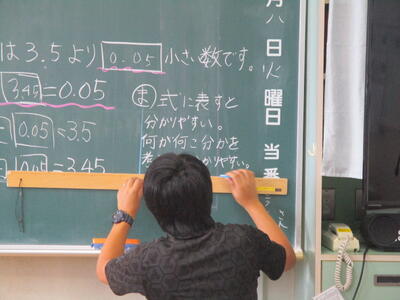 は3.5より 0.05 小さい数です。
3.45=0.05
0.05=3.5
0.05=3.45
ま 式に表すと
分かりやすい。
何が何こ分かを
かりやすい。
月
日
火 曜日
当番
さん